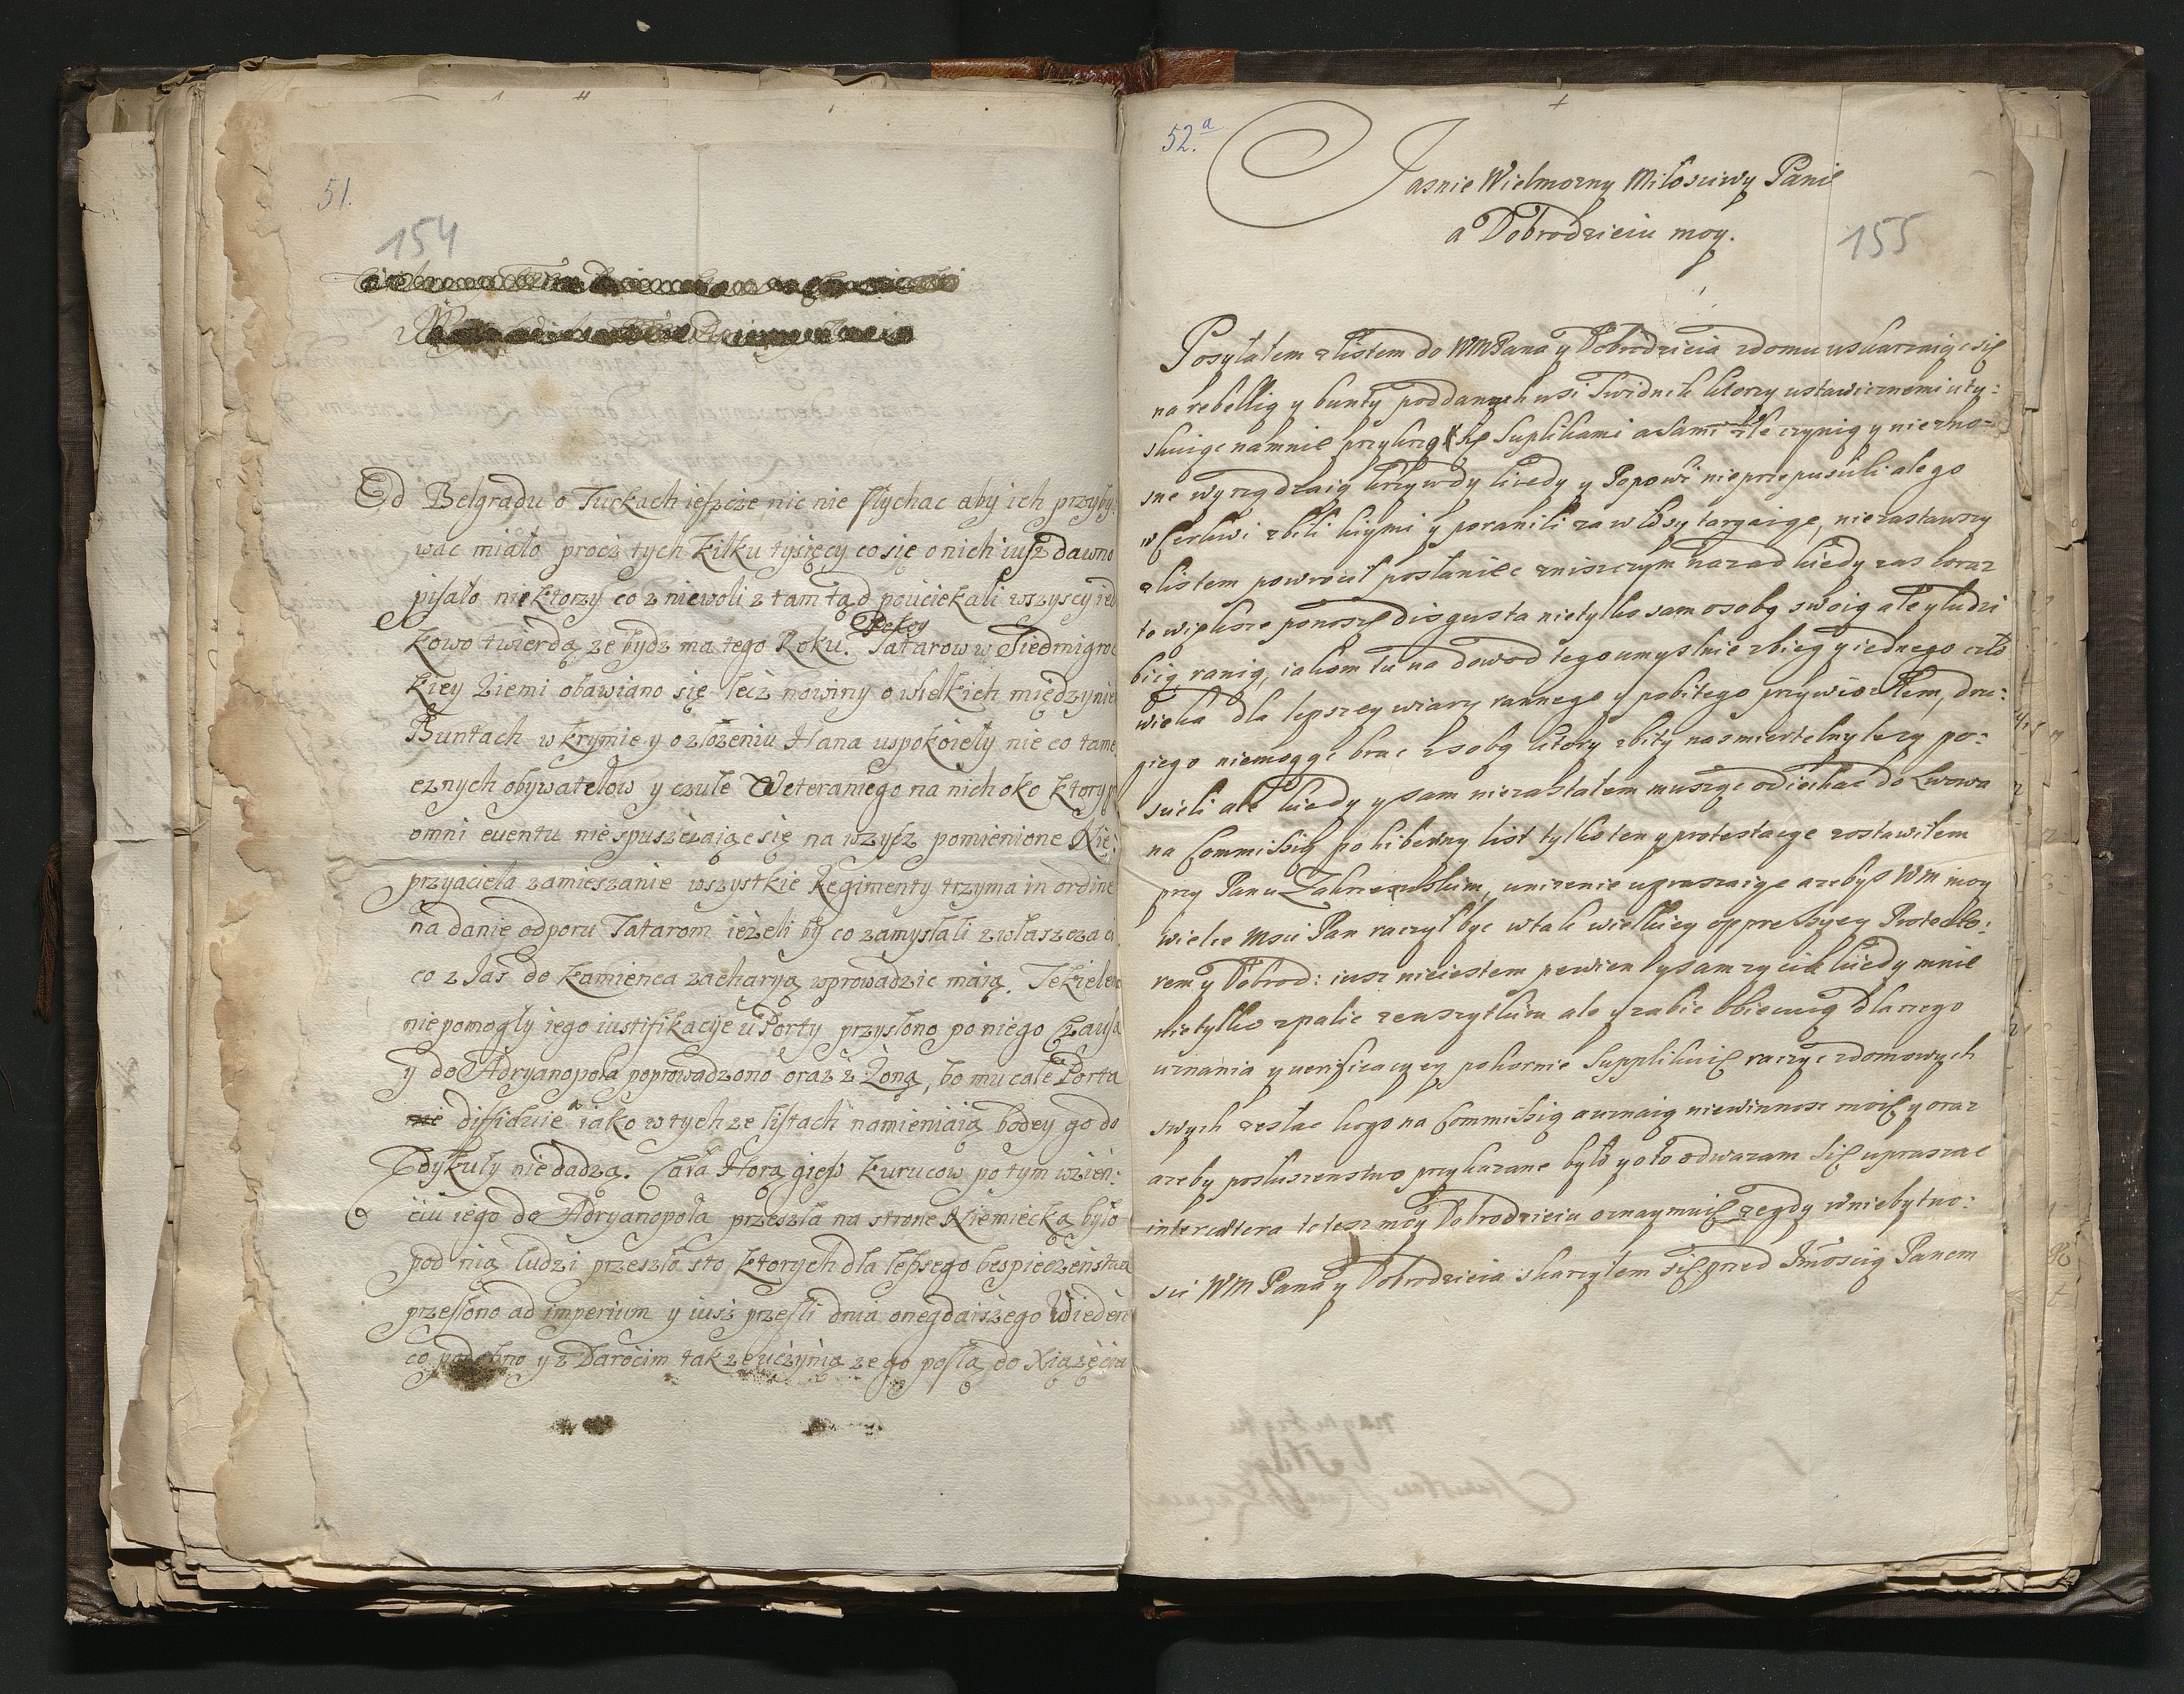 51.
154
Od Belgradu o Turkach ieszcze nic nie słychac aby ich przyby:
wac miało procz tych kilku tysięcy co się o nich iusz dawno
pisało niektorzy co z niewoli z tamtąd pouciekali wszyscy
kowo twierdzą ze bydz ma tego Roku. Tatarow w Siedmigro
kiey Ziemi obawiano się lecz nowiny o wielkich między
Buntach w krymie y o złozeniu Hana uspokoieły nie co tame
cznych obywatelow y czułe Weteraniego na nich oko ktory
omni euentu nie spusciaiąc się na wzysz pomienione Nie:
przyaciela zamieszanie wszystkie Regimenty trzyma in ordine
na danie odporu Tatarom iezeli by co zamyslali zwłaszcza ci
co z Jas do kamienca zacharyą wprowadzic maią. Tekiele
nie pomogły iego iustifikacije u Porty przysłono po niego Czausa
y do Adryanopola poprowadzono oraz z Zoną, bo mu cale Porta
diffiduie iako w tych ze listach namieniaią bodey go do
Edykuły nie dadzą. Cała Horągiew kurucow po tym wzień:
ciu iego do Adryanopola przeszła na strone Niemiecką było
pod nią ludzi przeszło sto ktorych dla lepszego bespieczenstwa
przesłono ad imperium y iusz przeszli dnia onegdaiszego Wieden
co podobno y z Darocim tak ze uczynią ze go poslą do Xiązęcia
52.a
155
Jasnie Wielmozny Miłosciwy Panie
a Dobrodzieiu moy.
Posyłałem z listem do WM Pana y Dobrodzieia z domu uskarzaiąc się
na rebellią y bunty poddanych wsi Swidnik ktorzy ustawicznemi uty:
skuiąc na mnie przykrzą się Suplikami a sami zle czynią y niezno-
sne wyrządzaią krzywdy kiedy y Popowi nie przepuscili ale go
w Cerkwi zbili kiymi y poranili za włosy targaiąc, nie zastawszy
z listem powrocił posłaniec z niszczym nazad kiedy zas coraz
to większe ponoszę disgusta nie tylko sam osobą swoią ale y ludzi
biią ranią, iakom tu na dowod tego umyslnie zbieg y iednego czło
wieka dla lepszey wiary rannego y pobitego przywiozłem, dru:
giego niemogąc brac z sobą ktory zbity na smiertelny lezy po:
scieli ale kiedy y sam niezastałem musząc odiechac do Lwowa
na Commissią po hiberny list tylko ten y protestacye zostawiłem
przy Panu Zakrzewskim, unizenie upraszaiąc azebys WM moy
wielce Msci Pan raczył byc w tak wielkiey oppressyey Protekto:
rem y Dobrod: iusz nieiestem pewien y sam zycia kiedy mnie
nietylko zpalic ze wszytkim ale y zabic obiecuią dla czego
uznania y uerificacyey pokornie Supplikuię raczyc z domowych
swych zesłac kogo na Commissią a uznaią niewinnosc moię y oraz
azeby posłuszenstwo przykazane było y oto odwazam się upraszac
intercetera totesz moy Dobrodzieiu oznaymuię ze gdy w niebytno:
sci WM Pana y Dobrodzieia skarzyłem się przed Jmoscią Panem